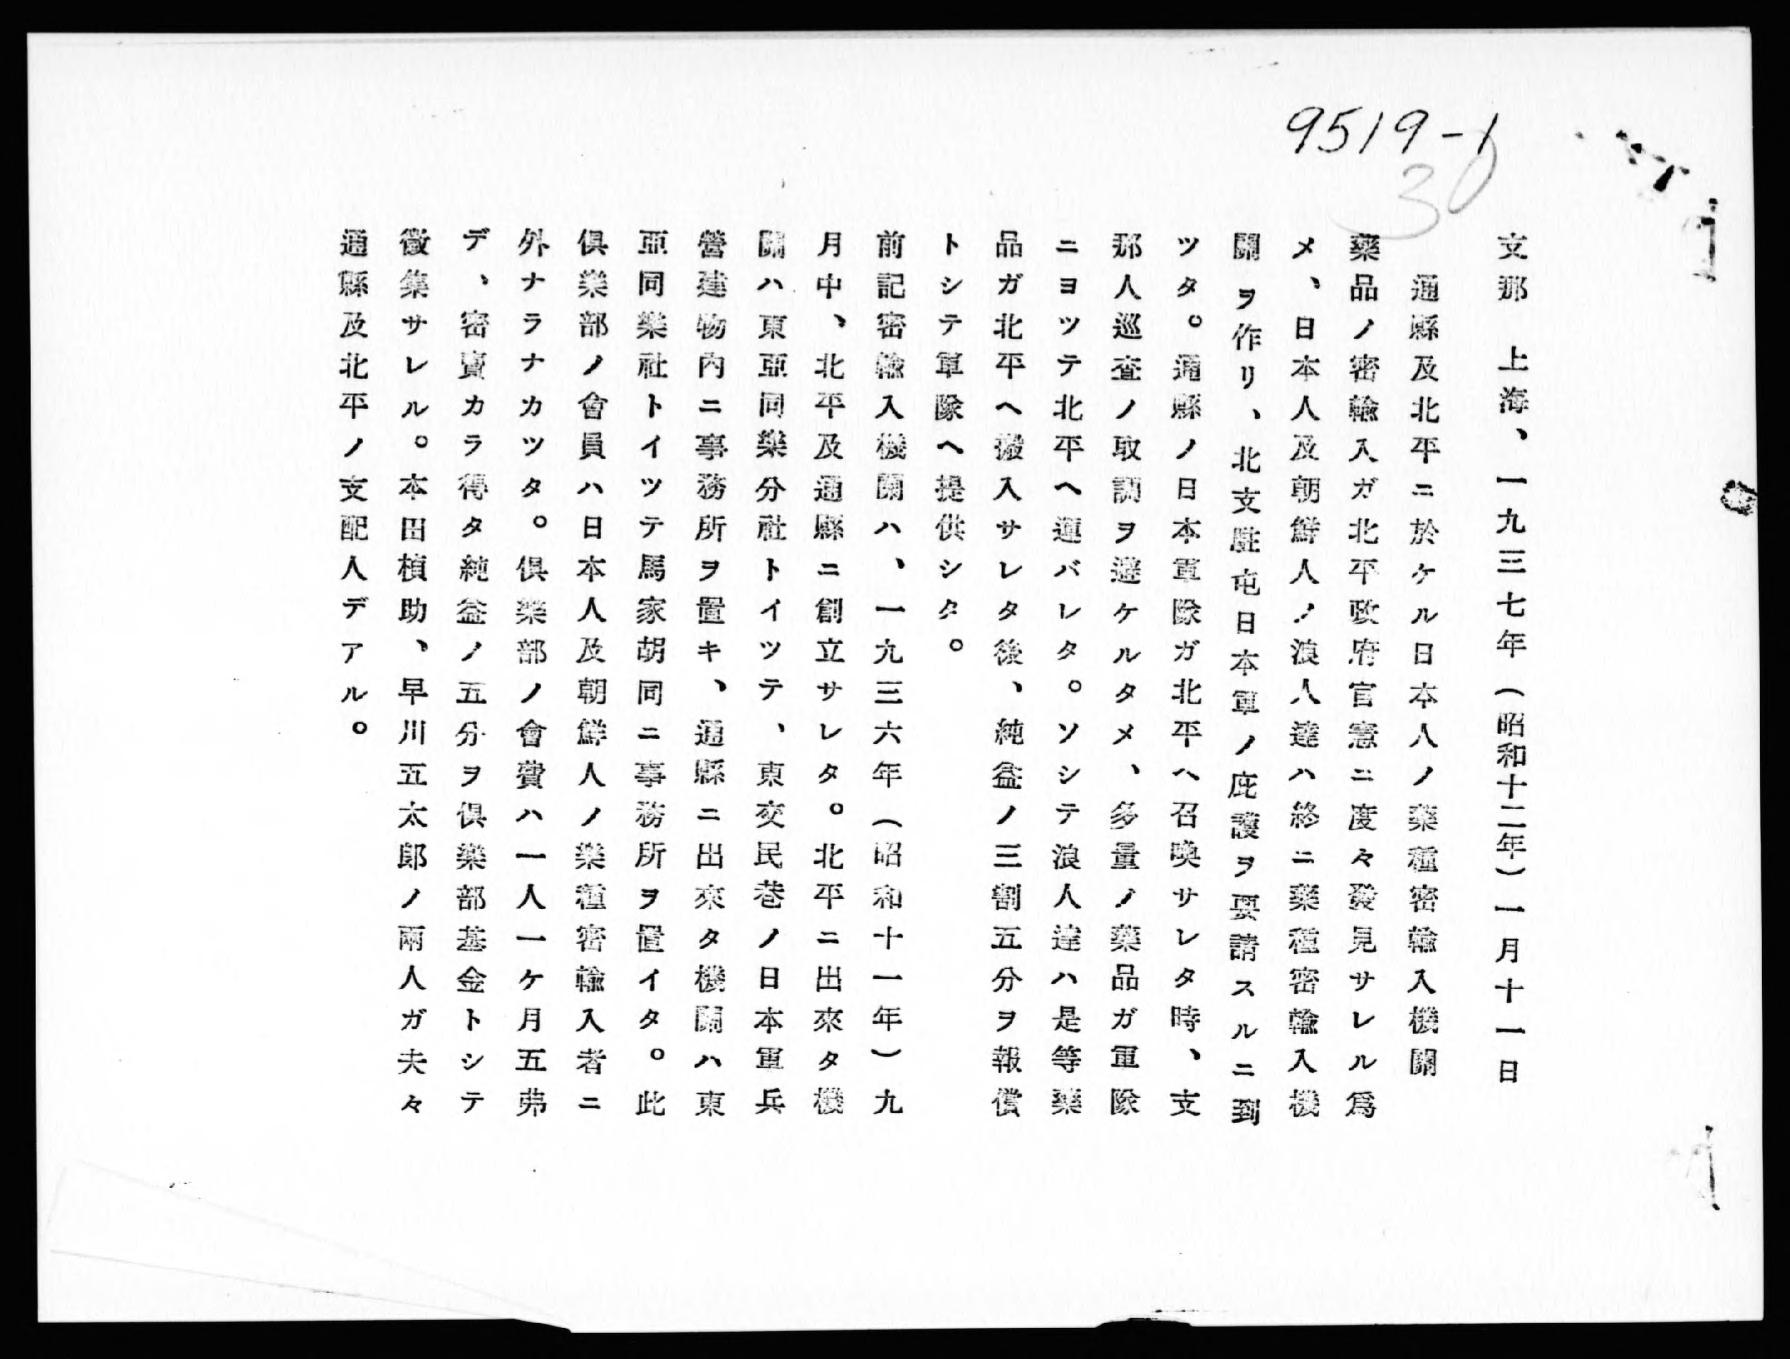 9519-1
30
支那　上海、一九三七年（昭和十二年）一月十一日
通縣及北平ニ於ケル日本人ノ藥種密輸入機關
藥品ノ密輸入ガ北平政府官憲ニ度々發見サレル爲
メ、日本人及朝鮮人ノ浪人達ハ終ニ藥種密輸入機
關ヲ作リ、北支駐屯日本軍ノ庇護ヲ要請スルニ到
ツタ。通縣ノ日本軍隊ガ北平ヘ召喚サレタ時、支
那人巡査ノ取調ヲ避ケルタメ、多量ノ藥品ガ軍隊
ニヨツテ北平ヘ運バレタ。ソシテ浪人達ハ是等藥
品ガ北平ヘ搬入サレタ後、純益ノ三割五分ヲ報償
トシテ軍隊ヘ提供シタ。
前記密輸入機關ハ、一九三六年（昭和十一年）九
月中、北平及通縣ニ創立サレタ。北平ニ出來タ機
關ハ東亞同樂分社トイツテ、東交民巷ノ日本軍兵
營建物内ニ事務所ヲ置キ、通縣ニ出來タ機關ハ東
亞同樂社トイツテ馬家胡同ニ事務所ヲ置イタ。此
倶樂部ノ會員ハ日本人及朝鮮人ノ藥種密輸入者ニ
外ナラナカツタ。倶樂部ノ會費ハ一人一ケ月五弗
デ、密賣カラ得タ純益ノ五分ヲ倶樂部基金トシテ
徴集サレル。本田楨助、早川五太郎ノ兩人ガ夫々
通縣及北平ノ支配人デアル。